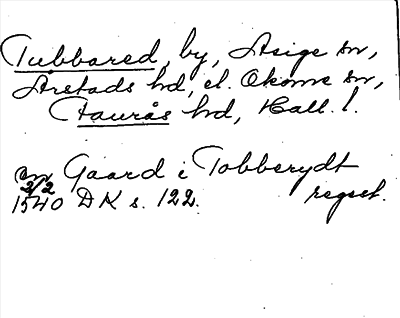 Tubbared, by, Asige sn,
Årstads hd, el. Okome sn,
Faurås hd, Hall. l.
en Gaard i Tobberydt
3/2
1540 DK s. 122. regest.